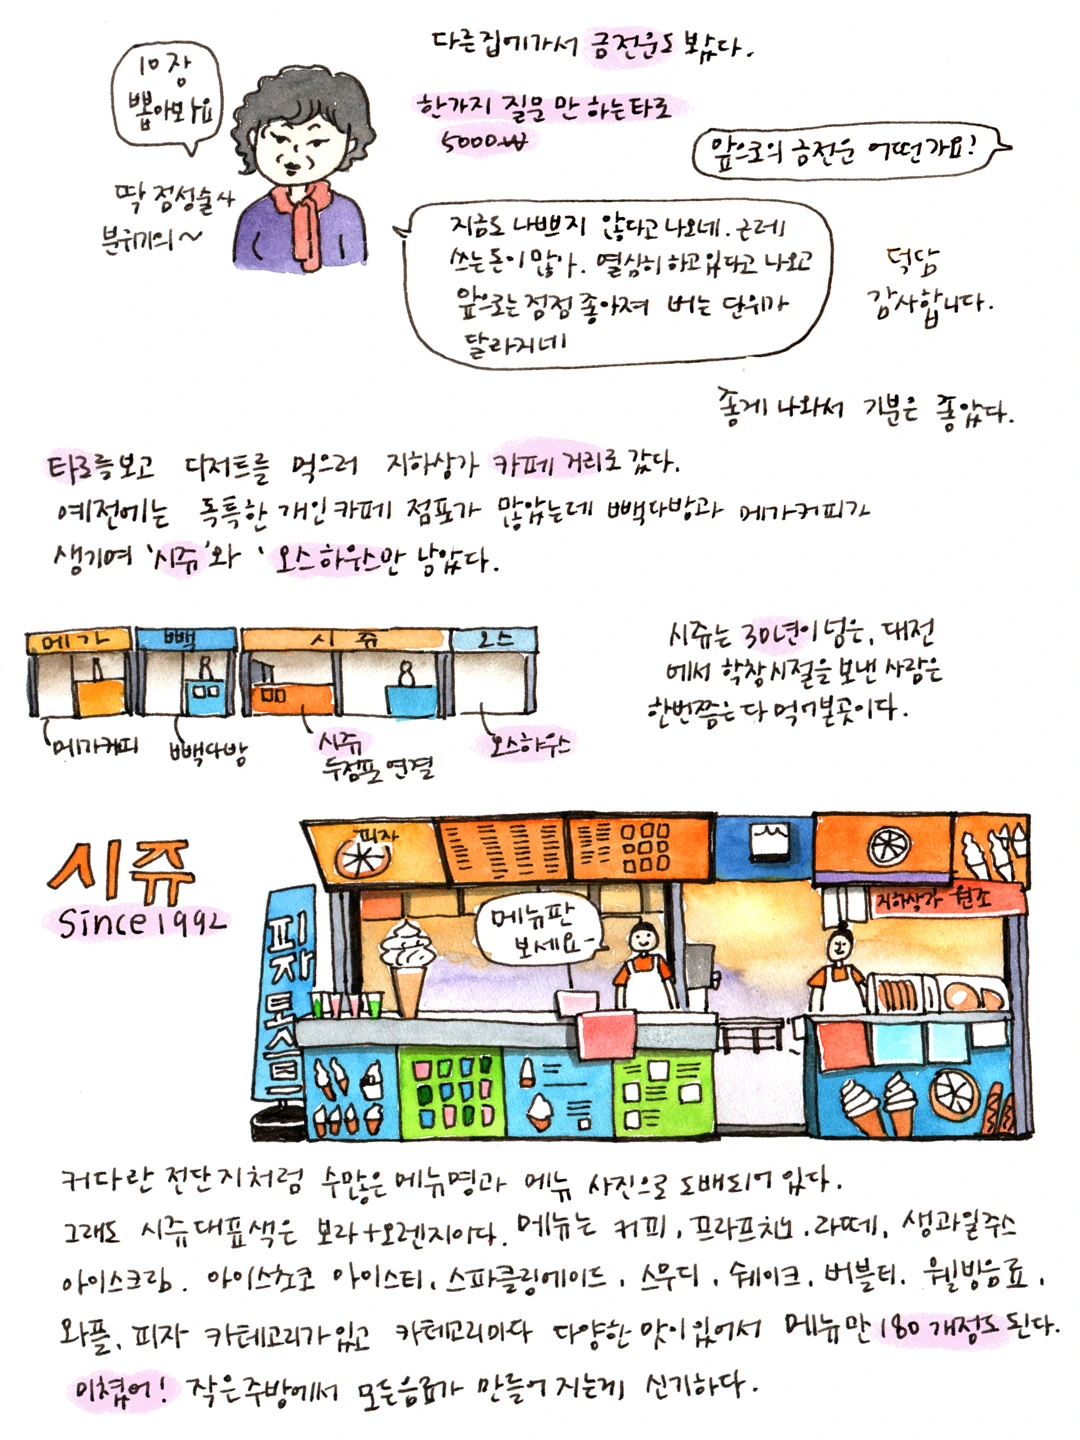 다른집에가서 금전운도 봤다.
10장
뽑아봐요
한가지 질문 만 하는타로
5000₩
앞으로의 금전운 어떤가요?
딱 점성술사
분위기의~
지금도 나쁘지 않다고 나오네. 근래
쓰는돈이 많아. 열심히 하고있다고 나오고
앞으로는 점점 좋아져 버는 단위가
달라지네
덕담
감사합니다.
좋게 나와서 기분은 좋았다.
타로를보고 디저트를 먹으러 지하상가 카페 거리로 갔다.
예전에는 독특한 개인카페 점포가 많았는데 빽다방과 메가커피가
생기여 '시쥬'와 '오스하우스만 남았다.
메가 빽 시쥬 오스
메가커피 빽다방 시쥬
두점포 연결
오스하우스
시쥬는 30년이 넘은, 대전
에서 학창시절을 보낸 사람은
한번쯤은 다 먹어본곳이다.
시쥬
Since 1992
피자
지하상가 원조
메뉴판
보세요-
피자토스트
커다란 전단지처럼 수많은 메뉴명과 메뉴 사진으로 도배되어 있다.
그래도 시쥬대표색은 보라+오렌지이다. 메뉴는 커피, 프라프치노, 라떼, 생과일주스
아이스크림. 아이스초코 아이스티, 스파클링에이드, 스무디, 쉐이크, 버블티. 웰빙음료,
와플, 피자 카테고리가있고 카테고리마다 다양한 맛이 있어서 메뉴만 180개정도 된다.
미쳤어! 작은주방에서 모든음료가 만들어 지는게 신기하다.